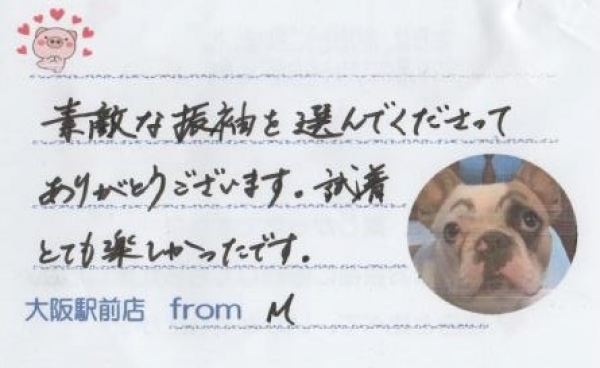 素敵な振袖を選んでくださって
ありがとうございます。試着
とても楽しかったです。
大阪駅前店 from M